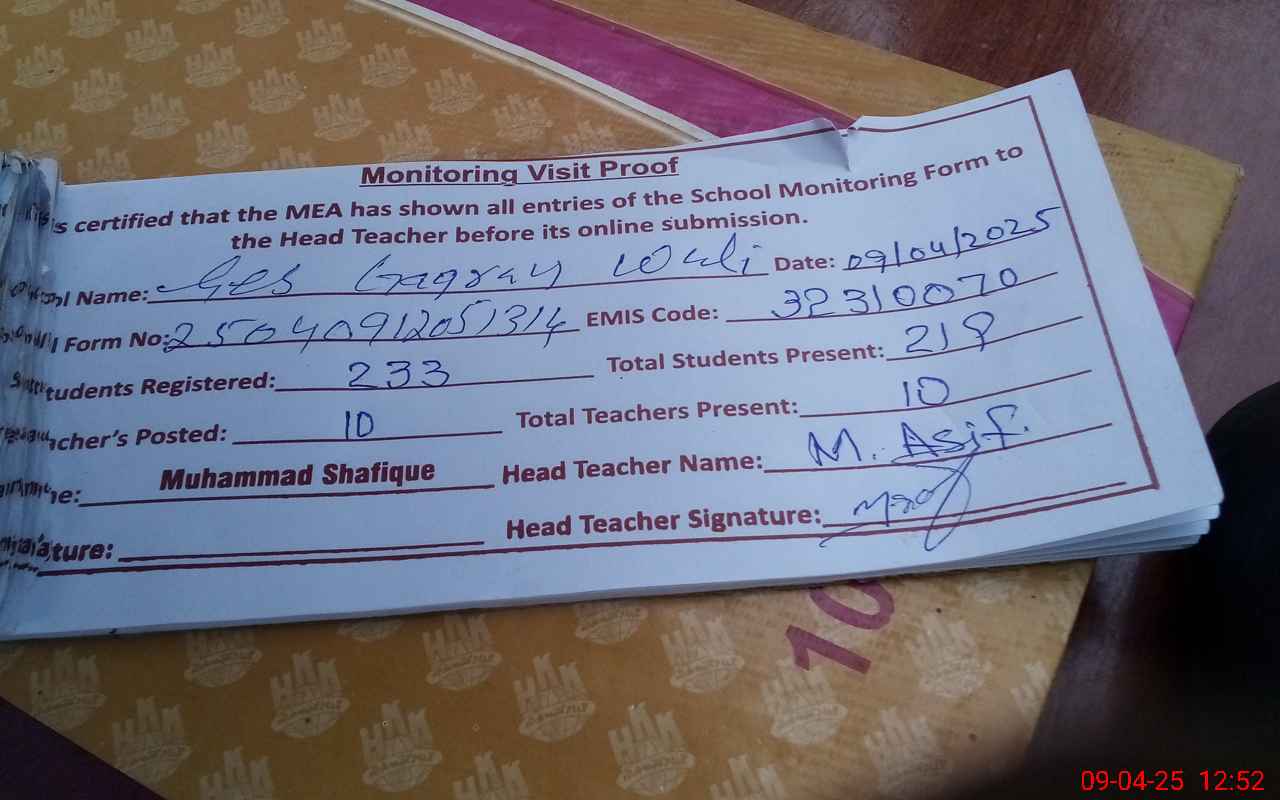 Monitoring Visit Proof
is certified that the MEA has shown all entries of the School Monitoring Form to
the Head Teacher before its online submission.
Name: Ges Date: 09/04/2025
Form No: 25040912051314 EMIS Code: 32310070
tudents Registered: 233 Total Students Present: 218
cher's Posted: 10 Total Teachers Present: 10
Muhammad Shafique Head Teacher Name: M. Asif.
ature: Head Teacher Signature:
HAK
10
09-04-25 12:52